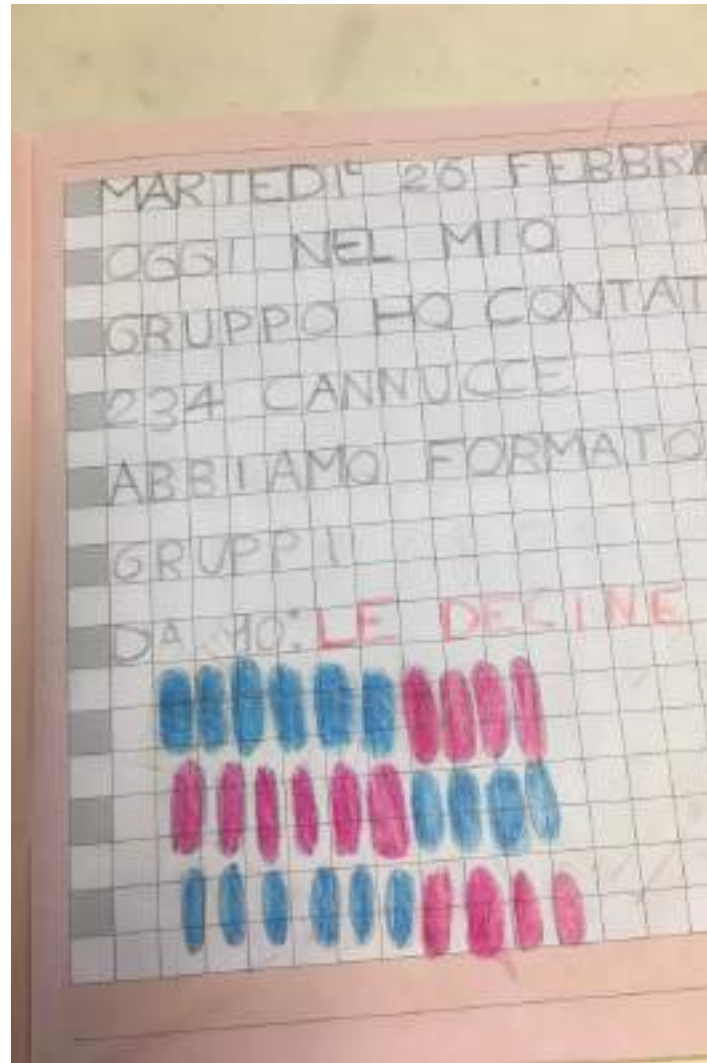 MARTEDI' 26 FEBBRA
OGGI NEL MIO
GRUPPO HO CONTAT
234 CANNUCCE
ABBIAMO FORMATO
GRUPPI
DA 10: LE DECINE